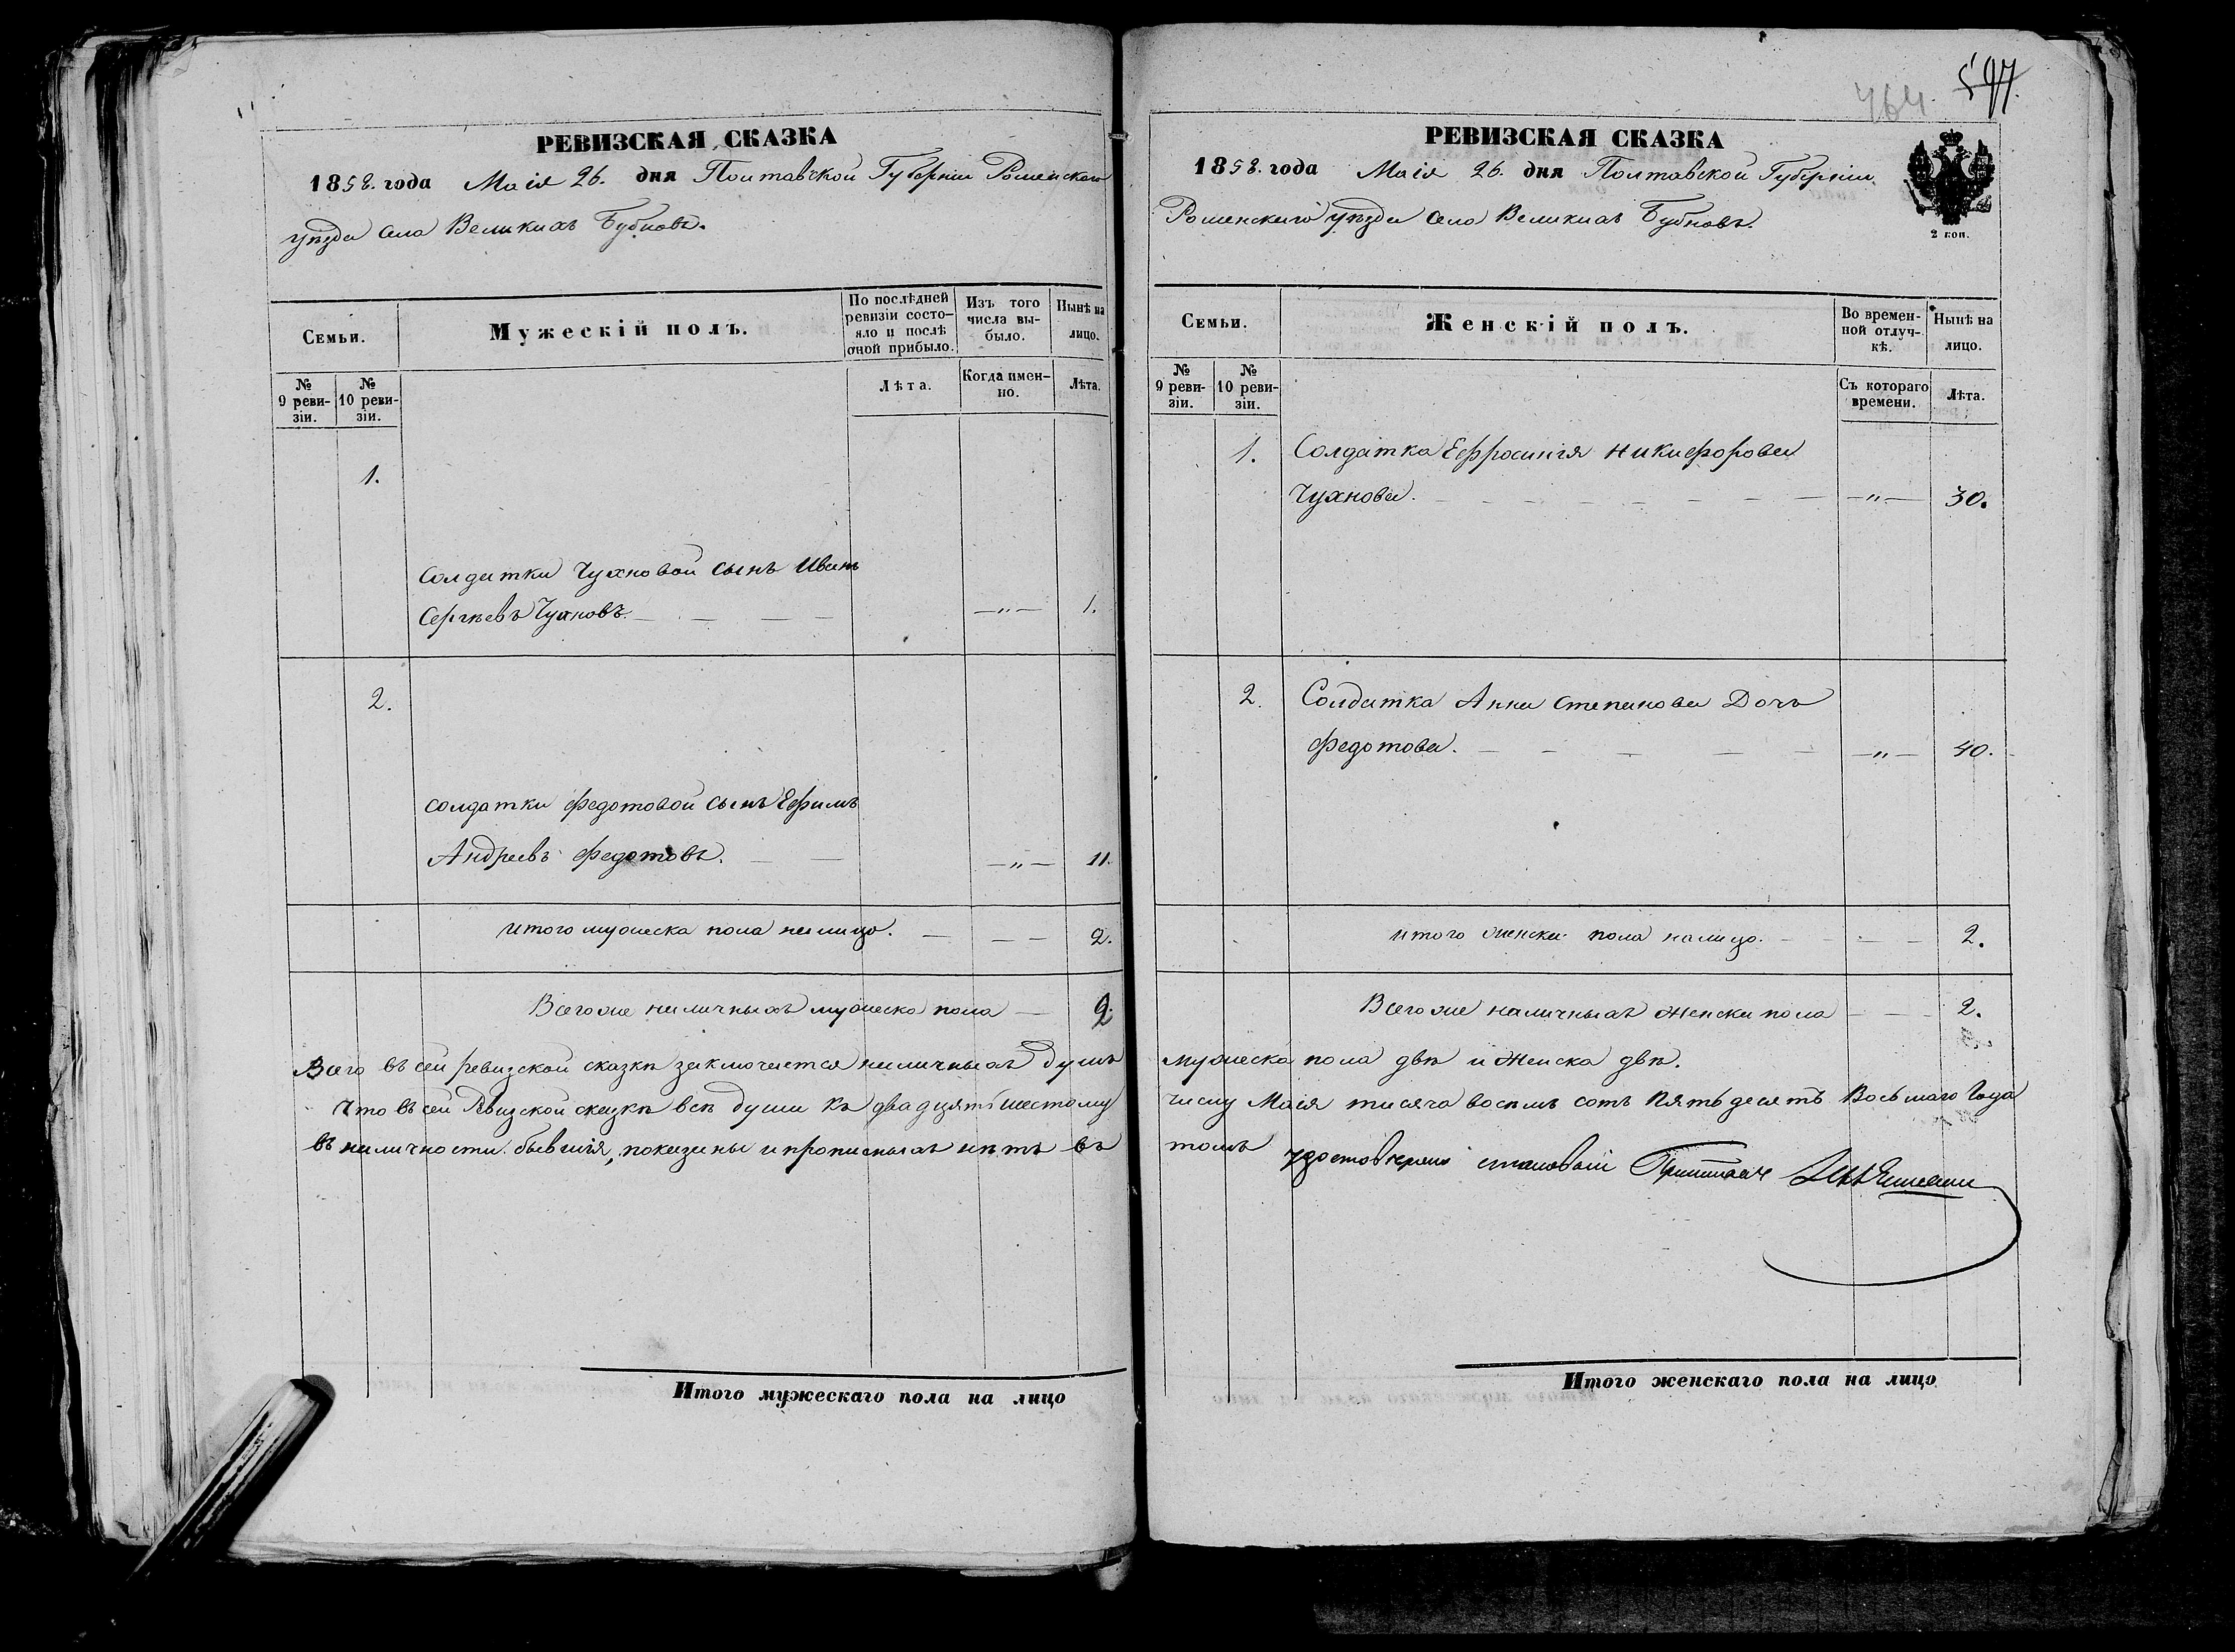 РЕВИЗСКАЯ СКАЗКА
1858. года Маія 26. дня Полтавской Губерніи Роменскаго
уѣзда села Великихъ Бубновъ.
Семьи.
Мужескій полъ.
По послѣдней
ревизіи состо-
яло и послѣ
оной прибыло.
Изъ того
числа вы-
было.
Нынѣ на
лицо.
№
9 реви-
зіи.
№
10 реви-
зіи.
Лѣта.
Когда имен-
но.
Лѣта.
1.
Солдатки Чухновой сынъ Иванъ
Сергѣевъ Чухновъ. — — — — — „ — 1.
2.
солдатки Федотовой сынъ Ефимъ
Андреевъ Федотовъ. — — — „ — 11.
итого мужеска пола налицо. — — — 2.
Всего же наличныхъ мужеска пола — 2.
Всего въ сей ревизской сказкѣ заключается наличныхъ душъ
Что въ сей Ревизской сказкѣ всѣ души къ двадцять шестому
въ наличности бывшія, показаны и прописныхъ нѣтъ въ
Итого мужескаго пола на лицо
464. 597.
РЕВИЗСКАЯ СКАЗКА
1858. года Маія 26. дня Полтавской Губерніи
Роменскаго уѣзда села Великихъ Бубновъ.
2 коп.
Семьи.
Женскій полъ.
Во времен-
ной отлуч-
кѣ.
Нынѣ на
лицо.
№
9 реви-
зіи.
№
10 реви-
зіи.
Съ котораго
времени.
Лѣта.
1. Солдатка Ефросинія Никифорова
Чухнова. — — — — — — — „ — 30.
2. Солдатка Анна Степанова Дочь
Федотова. — — — — — — „ — 40.
итого женска пола налицо. — — — 2.
Всего же наличныхъ женска пола — — 2.
мужеска пола двѣ и женска двѣ.
числу Маія тисяча восемь сотъ пятьдесятъ Восьмаго Года
томъ удостовѣряю становой Приставъ
Итого женскаго пола на лицо